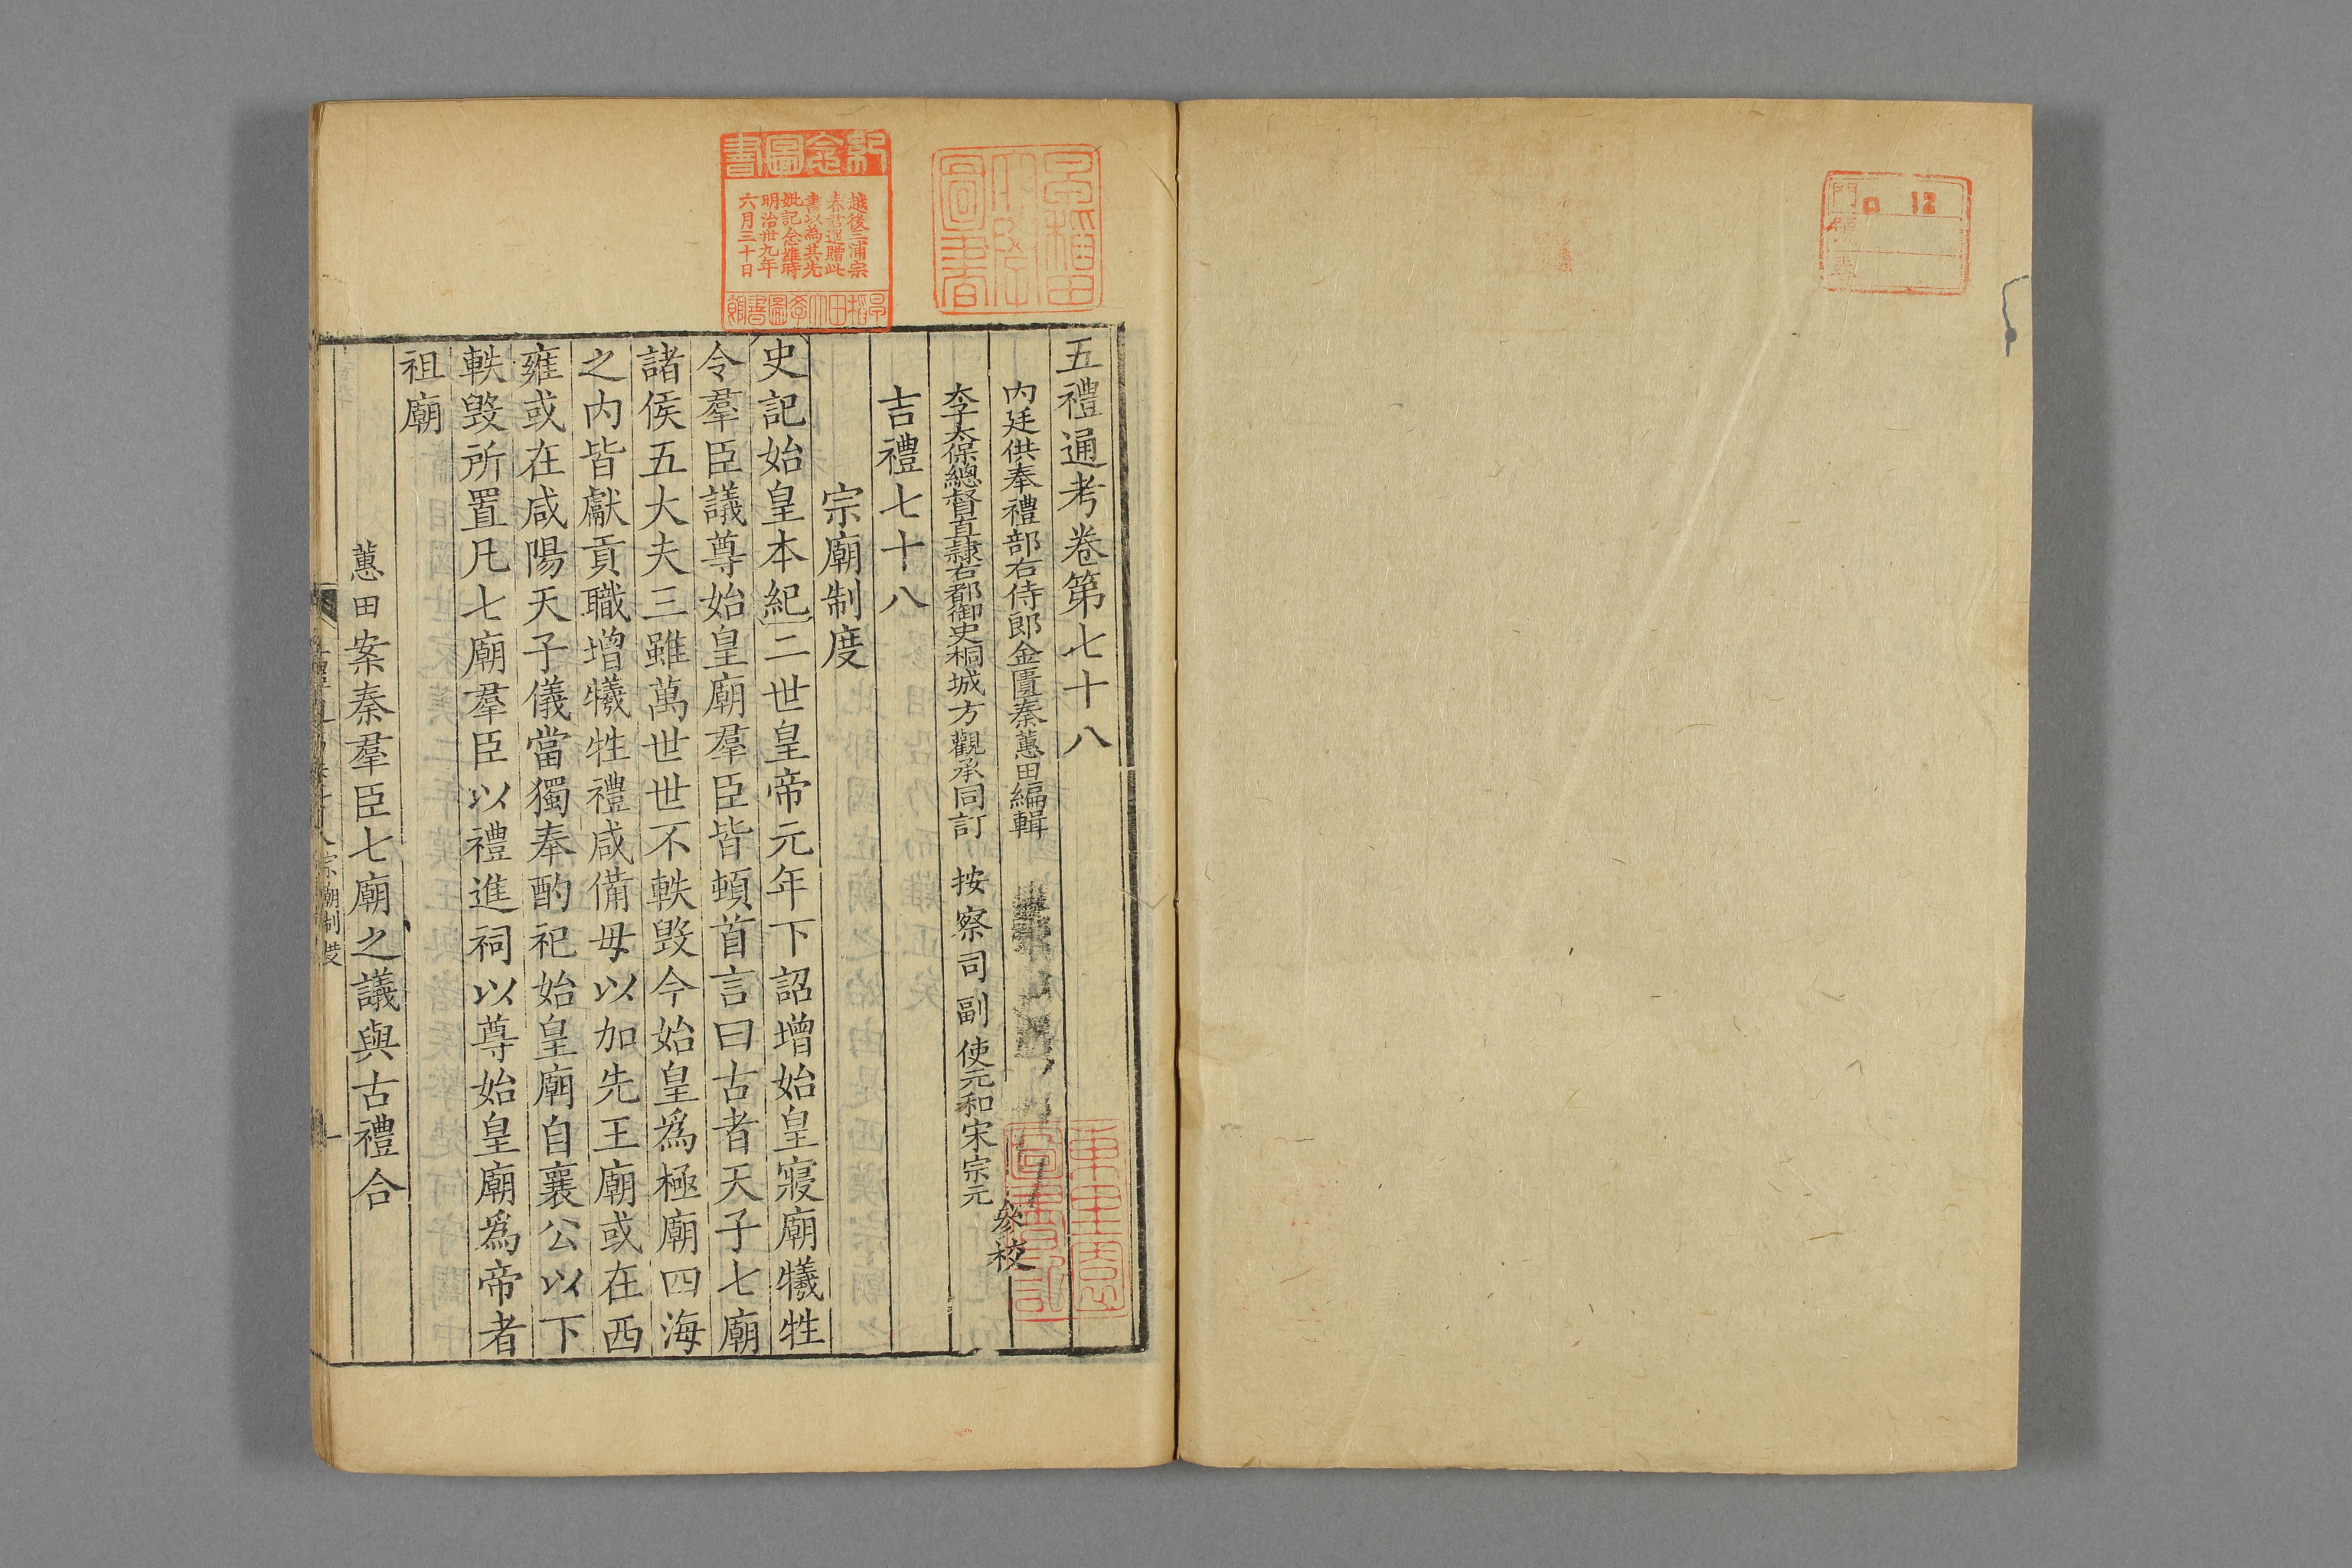 門 ロ 12
號
卷
五禮通考卷第七十八
内廷供奉禮部右侍郎金匱秦蕙田編輯
太子太保總督直隷右都御史桐城方觀承同訂 按察司副使元和宋宗元
參校
吉禮七十八
宗廟制度
史記始皇本紀二世皇帝元年下詔增始皇寢廟犧牲
令羣臣議尊始皇廟羣臣皆頓首言曰古者天子七廟
諸侯五大夫三雖萬世世不軼毀今始皇爲極廟四海
之内皆獻貢職增犧牲禮咸備毋以加先王廟或在西
雍或在咸陽天子儀當獨奉酌祀始皇廟自襄公以下
軼毀所置凡七廟羣臣以禮進祠以尊始皇廟爲帝者
祖廟
蕙田案秦羣臣七廟之議與古禮合
宗廟制度
一
早稻田
大學
圖書
紀念圖書
越後三浦宗
春君遥贈此
書以為其先
妣記念維時
明治卅九年
六月三十日
早稻田大學圖書館